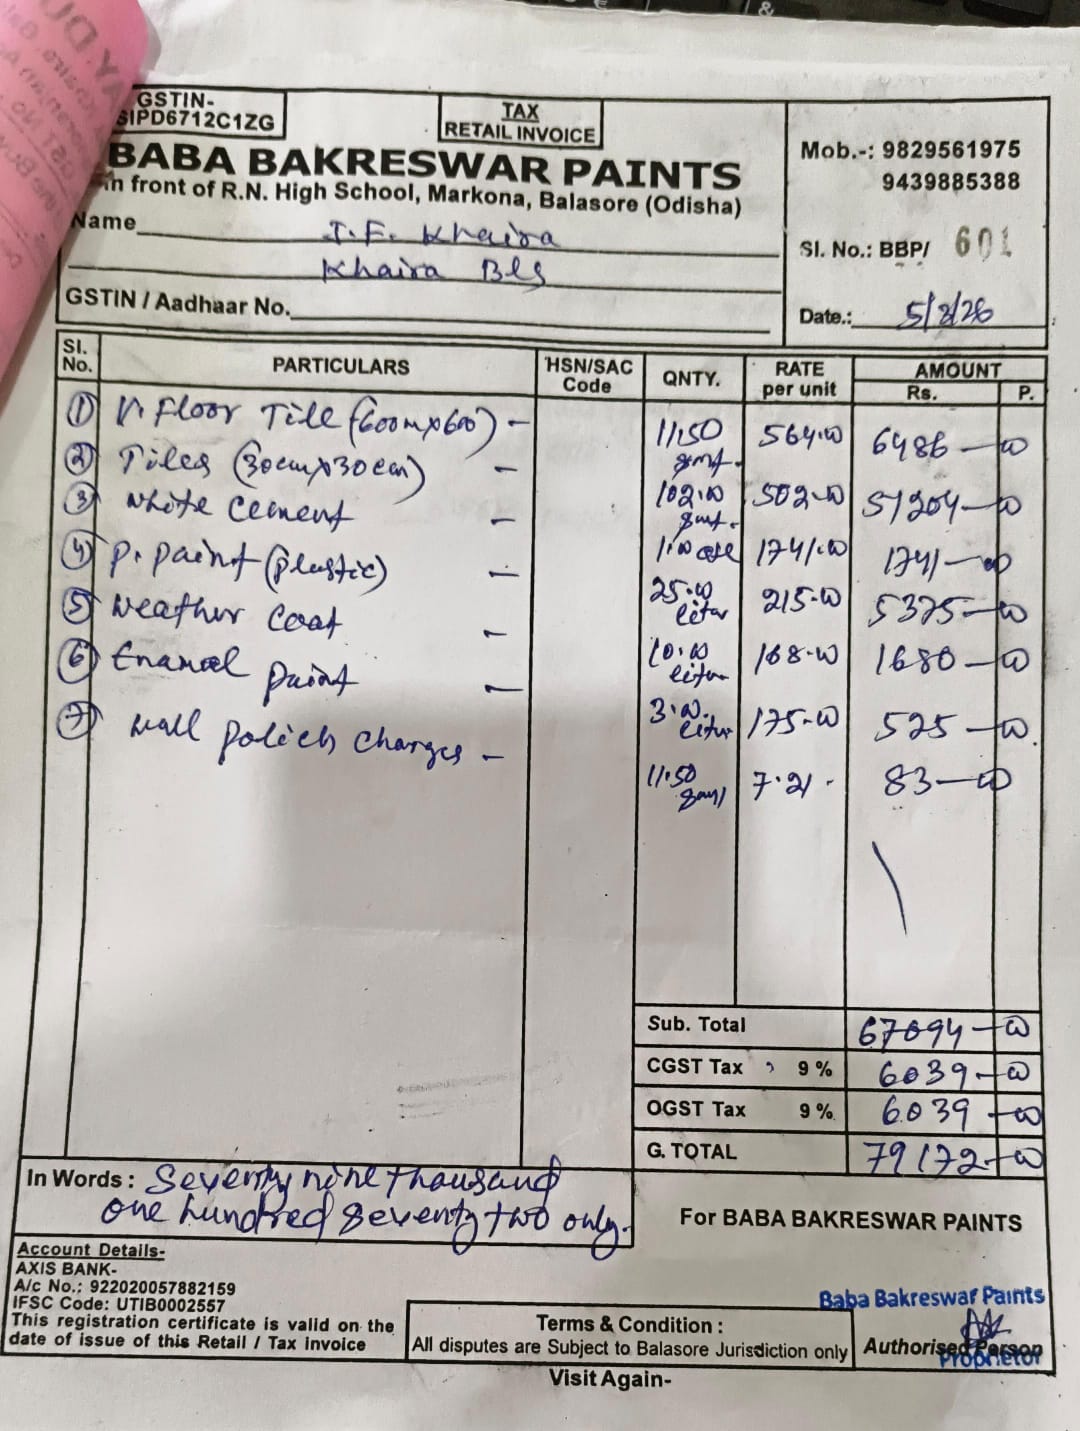 GSTIN-
SIPD6712C1ZG
TAX
RETAIL INVOICE
BABA BAKRESWAR PAINTS
In front of R.N. High School, Markona, Balasore (Odisha)
Mob.-: 9829561975
9439885388
Name J.E. Khaira
Khaira Bls
Sl. No.: BBP/ 601
GSTIN / Aadhaar No.
Date.: 5/2/26
Sl. No. PARTICULARS HSN/SAC Code QNTY. RATE per unit AMOUNT Rs. P.
① V. Floor Tile (600mx600) - 11.50 564.00 6486-00
② Tiles (30cmx30cm) - 102.00 502-00 51204-00
③ White Cement - 1.00 1741.00 1741-00
④ P. paint (plastic) - 25.00 liter 215-00 5375-00
⑤ Weather Coat - 10.00 liter 168-00 1680-00
⑥ Enamel paint - 3.00 liter 175-00 525-00
⑦ Wall polich charges - 11.50 7.21 - 83-00
Sub. Total 67094-00
CGST Tax 9 % 6039-00
OGST Tax 9 % 6039-00
G. TOTAL 79172-00
In Words : Seventy nine thousand
one hundred seventy two only.
For BABA BAKRESWAR PAINTS
Account Details-
AXIS BANK-
A/c No.: 922020057882159
IFSC Code: UTIB0002557
This registration certificate is valid on the
date of issue of this Retail / Tax invoice
Terms & Condition :
All disputes are Subject to Balasore Jurisdiction only
Baba Bakreswar Paints
Authorised Person
Proprietor
Visit Again-